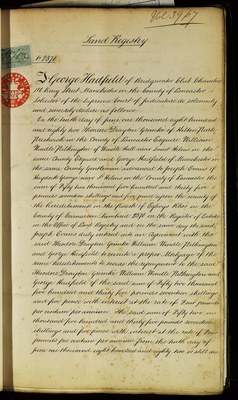 Land Registry
I George Hadfield of Bridgewater Club Chambers
King Street Manchester in the County of Lancaster
Solicitor of the Supreme Court of Judicature do solemnly
and sincerely declare as follows
On the tenth day of June one thousand eight hundred
and eighty two Horatio Drayton Gamble of
in the County of Lancaster Esquire William
Windle Pilkington of Windle Hall near Saint Helens in the
same County Esquire and George Hadfield of Manchester in
the same County Gentleman advanced to Joseph Evans of
Haydock Grange near St Helens in the County of Lancaster the
sum of Fifty two thousand five hundred and thirty five
pounds seventeen shillings and five pence upon the security of
the hereditaments in the Parish of in the
County of Carnarvon numbered on the Register of Estates
in the Office of Land Registry and on the same day the said
Joseph Evans duly entered into an Agreement with the
said Horatio Drayton Gamble William Windle Pilkington
and George Hadfield to execute a proper Mortgage of the
same hereditaments to secure the repayment to the said
Horatio Drayton Gamble William Windle Pilkington and
George Hadfield of the said sum of Fifty two thousand
five hundred and thirty five pounds seventeen shillings
and five pence with interest at the rate of Four pounds
per centum per annum The said sum of Fifty two
thousand five hundred and thirty five pounds seventeen
shillings and five pence with interest at the rate of Four
pounds per centum per annum from the tenth day of
June one thousand eight hundred and eighty two is still due